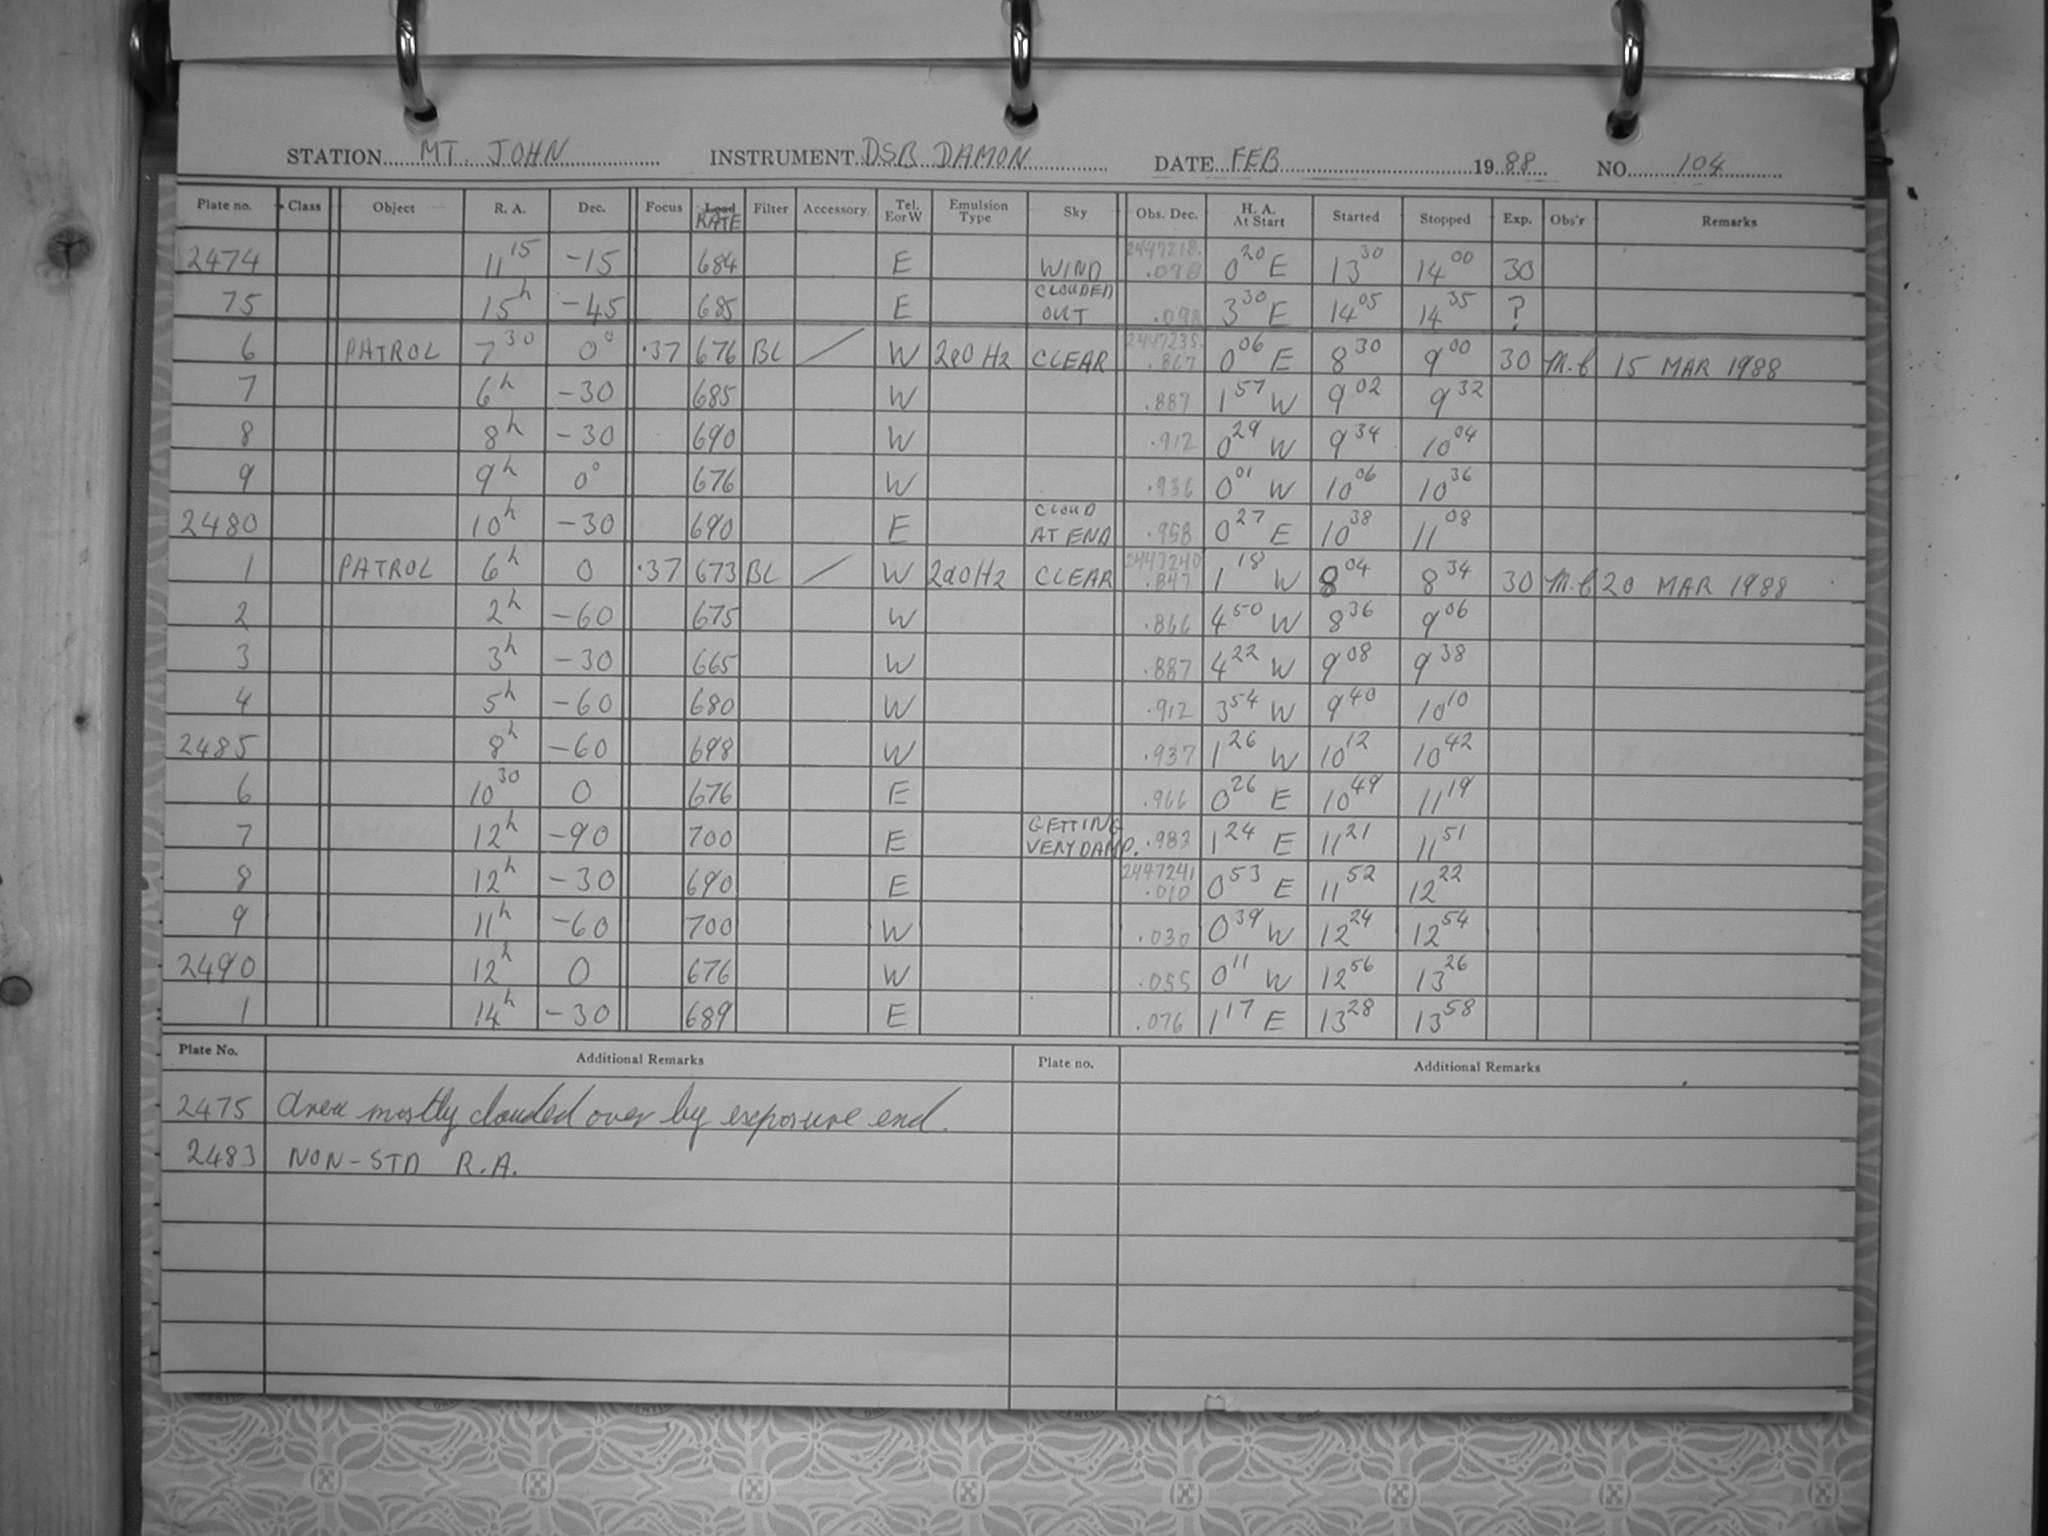 STATION MT. JOHN INSTRUMENT DSB DAMON DATE FEB 1988 NO. 104
Plate no. Class Object R. A. Dec. Focus Load RATE Filter Accessory Tel. E or W Emulsion Type Sky Obs. Dec. H. A. At Start Started Stopped Exp. Obs'r Remarks
2474 11 15 -15 684 E WIND 2447218. .078 0 20 E 13 30 14 00 30
75 15 h -45 685 E CLOUDED OUT 3 30 E 14 05 14 35 ?
6 PATROL 7 30 0° .37 676 BL / W 2aO H2 CLEAR 2447235. .867 0 06 E 8 30 9 00 30 M.C 15 MAR 1988
7 6 h -30 685 W .887 1 57 W 9 02 9 32
8 8 h -30 690 W .912 0 29 W 9 34 10 04
9 9 h 0° 676 W .936 0 01 W 10 06 10 36
2480 10 h -30 690 E CLOUD AT END .958 0 27 E 10 38 11 08
1 PATROL 6 h 0 .37 673 BL / W 2aO H2 CLEAR 2447240 .847 1 18 W 8 04 8 34 30 M.C 20 MAR 1988
2 2 h -60 675 W .866 4 50 W 8 36 9 06
3 3 h -30 665 W .887 4 22 W 9 08 9 38
4 5 h -60 680 W .912 3 54 W 9 40 10 10
2485 8 h -60 698 W .937 1 26 W 10 12 10 42
6 10 30 0 676 E .966 0 26 E 10 49 11 19
7 12 h -90 700 E GETTING VERY DAMP. .983 1 24 E 11 21 11 51
8 12 h -30 690 E 2447241 .010 0 53 E 11 52 12 22
9 11 h -60 700 W .030 0 39 W 12 24 12 54
2490 12 h 0 676 W .055 0 11 W 12 56 13 26
1 14 h -30 689 E .076 1 17 E 13 28 13 58
Plate No. Additional Remarks Plate no. Additional Remarks
2475 Area mostly clouded over by exposure end.
2483 NON-STD R.A.